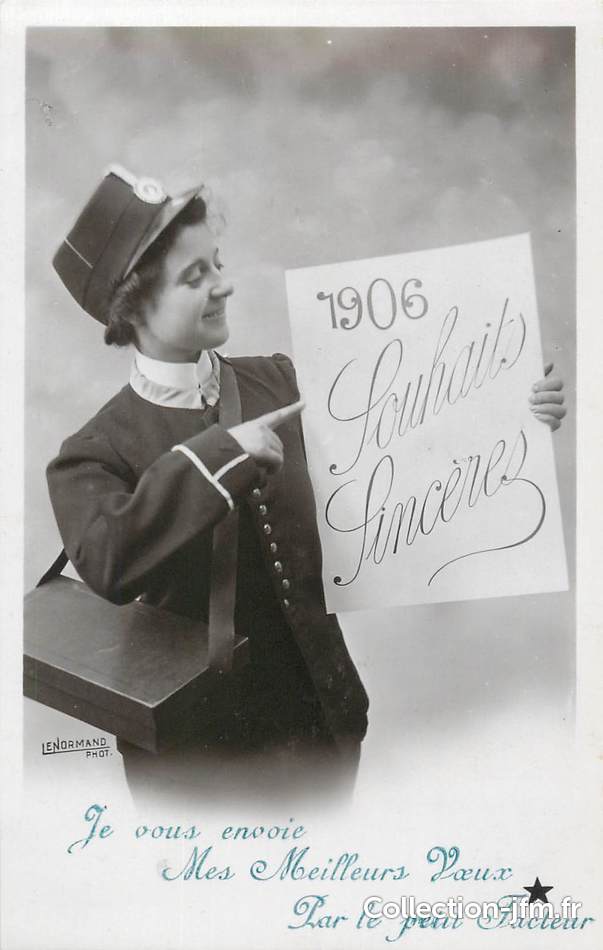 1906
Souhaits
Sincères
LENORMAND
PHOT.
Je vous envoie
Mes Meilleurs Vœux
Par le petit Facteur
Collection-jfm.fr